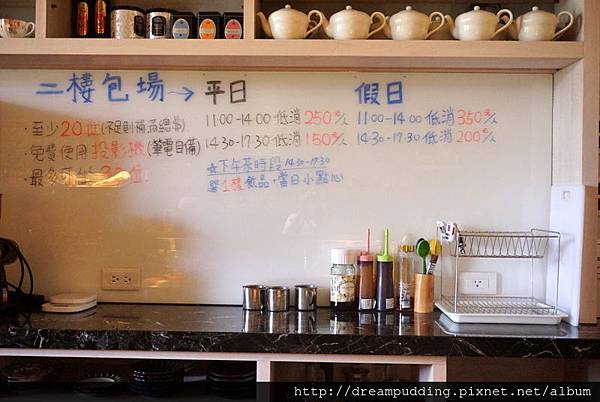 二樓包場→ 平日 假日
· 至少20位(不足則補滿總幣)
· 免費使用投影機(筆電自備)
· 最多可坐 位
11:00-14:00 低消250元/人
14:30-17:30 低消150元/人
11:00-14:00 低消350元/人
14:30-17:30 低消200元/人
☆下午茶時段 14:30-17:30
1種飲品+當日小點心
http://dreampudding.pixnet.net/album